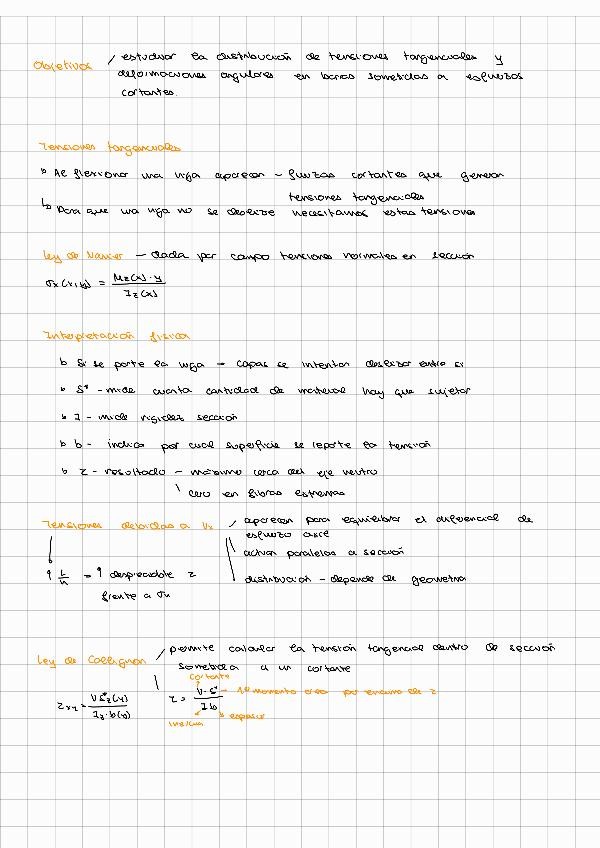 Objetivos / estudiar la distribución de tensiones tangenciales y
deformaciones angulares en barras sometidas a esfuerzos
cortantes.
Tensiones tangenciales
Al flexionar una viga aparecen - fuerzas cortantes que generan
tensiones tangenciales
Para que una viga no se deslice necesitamos estas tensiones
Ley de Navier - dada por campo tensiones normales en sección
σx(x,y) = Mz(x)·y / Iz(x)
Interpretación física
Si se parte la viga - capas se intentan deslizar entre sí
S* - mide cuanta cantidad de material hay que sujetar
I - mide rigidez sección
b - indica por cual superficie se reparte la tensión
τ - resultado - máximo cerca del eje neutro
cero en fibras extremas
Tensiones debidas a Vz / aparecen para equilibrar el diferencial de
esfuerzo
actúan paralelas a sección
↑ L/h = ↑ despreciable τ
distribución - depende de geometría
frente a σx
Ley de Collignon / permite calcular la tensión tangencial dentro de sección
sometida a un cortante
cortante
τxy = V S*z(y) / Iz·b(y)
τ = V·S* / I b - 1er momento área por encima de z
espesor
inercia